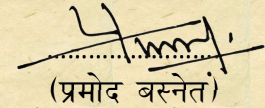 (प्रमोद बस्नेत)